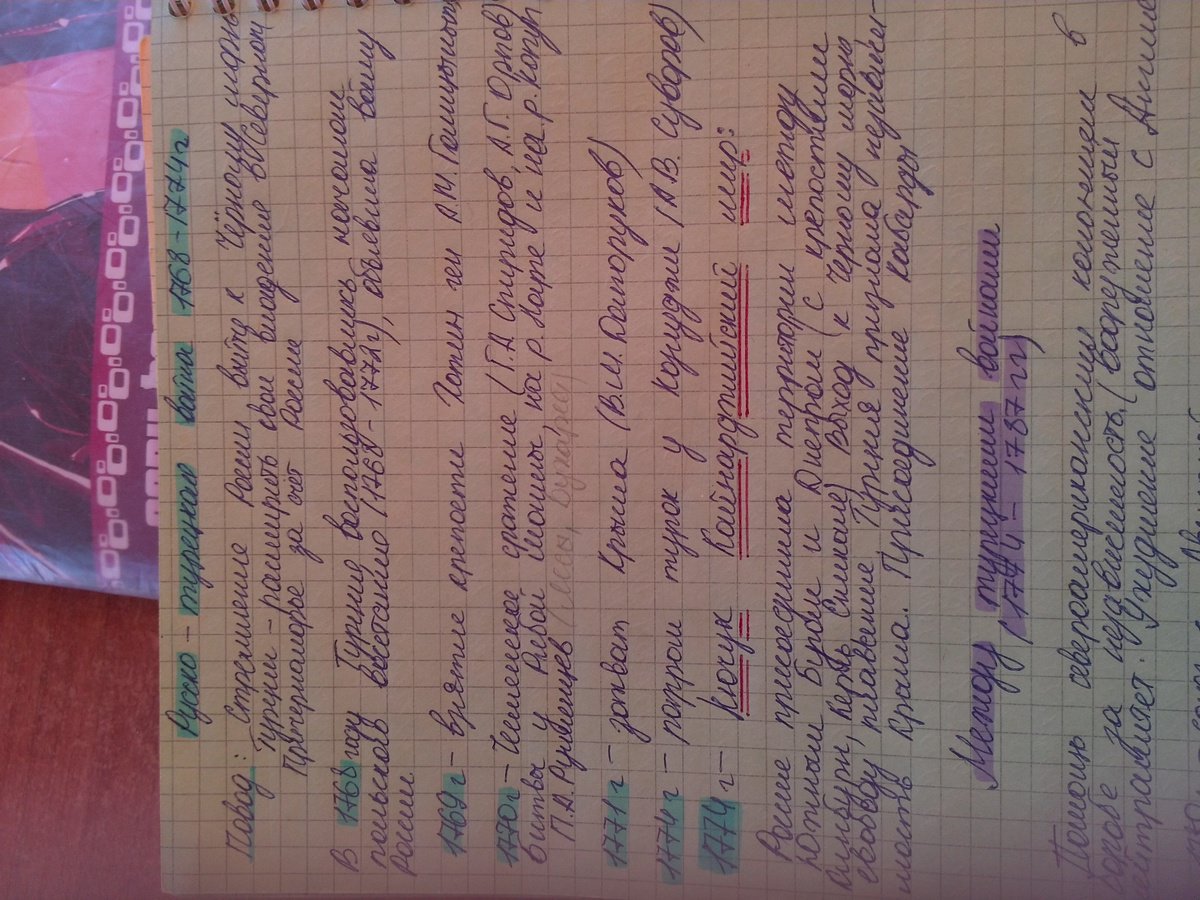 Русско - турецкая война 1768-1774г
Повод: Стремление России выйти к Чёрному морю
Турции - расширить свои владение в Северном
Причерноморье за счёт России
В 1768 году Турция воспользовавшись началом
польского восстания (1768-1772г), объявила войну
России
1769г - взятие крепости Хотин ген А.М. Голицыным
1770г - Чесменское сражение (Г.А Спиридов, А.Г. Орлов)
битвы у Рябой Могилы, на р. Ларге и на р. Кагул
П.А. Румянцев
1771г - захват Крыма (В.М. Долгоруков)
1774г - погром турок у Козлуджи (А.В. Суворов)
1774г - Кючук Кайнарджийский мир:
Россия присоединила территории между
Южным Бугом и Днепром (с крепостями
Кинбурн, Керчь, Еникале) выход к Чёрному морю
свободу плавание Турция признала независи-
мость Крыма. Присоединение Кабарды
Между турецкими войнами
(1774 - 1787гг)
Помощь североамериканским колониям в
борьбе за независимость (вооруженный
нейтралитет. Ухудшение отношение с Англией